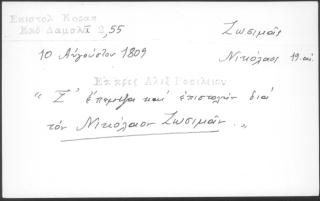 Επιστολ Κοραη
Εκδ Δαμαλᾶ 2,55
Ζωσιμᾶς
10 Αὐγούστου 1809
Νικόλαος 19. αἰ.
Ἐκ πρὸς Ἀλεξ Βασιλείου
"Σ' ἔπεμψα καὶ ἐπιστολὴν διὰ
τὸν Νικόλαον Ζωσιμᾶν.„